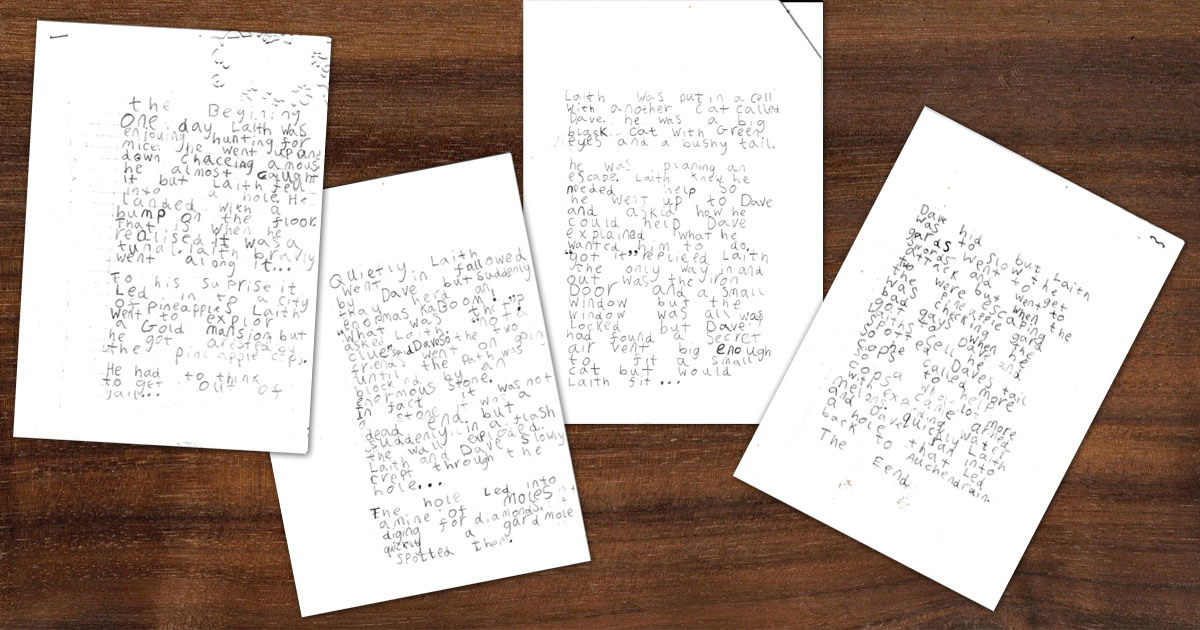 the Begining
One day Laith was
enjoying hunting for
mice. he went up and
down chaceing a mous
he almost caught
it but Laith fell
into a hole. He
landed with a
bump on the floor
that is when he
realised it was a
tunal. Laith bravly
went along it...
To his suprise it
Led in to a city
of Pineapples Laith
went to explor
a Gold mansion but
he got arested by
the pineapple cops.
He had to think
to get out of
jail...
Laith was put in a cell
with another cat called
Dave. he was a big
black cat with Green
eyes and a bushy tail.
he was planing an
escape. Laith knew he
needed help so
he went up to Dave
and asked how he
could help Dave
explained what he
wanted him to do.
"got it" replied Laith
the only way in and
out was the iron
Door and a small
window but the
window was all was
locked but Dave
had found a secret
air vent big enough
to fit a small
cat but would
Laith fit...
Quietly Laith
went in followed
by Dave but suddenly
they herd an
enormas KaBoom!
"What was that"?
asked Laith "no
clue" said Dave so the two
friends went on going
until the path was
block'nd by an
enormous stone.
In fact it was not
a stone it was a
dead end. but
suddenly in a flash
the wall exploded.
Laith and Dave slowly
crept through the
hole...
The hole Led into
a mine of moles
diging for diamonds.
quickly a gard mole
spotted them.
Dave hid but Laith
was to slow the
gards went to get
swords and went to
attack but when the
the were escaping
was pine apple gard
bad checking on the
got guys when he
Laiths cell he and
spotted Daves tail
so he called more
cops to help
oopsa whole lot more
cops came armed
with exploding water
melons. quickly Laith
and Dave ran into
a hole that Led
back to Auchendrain.
The Eend